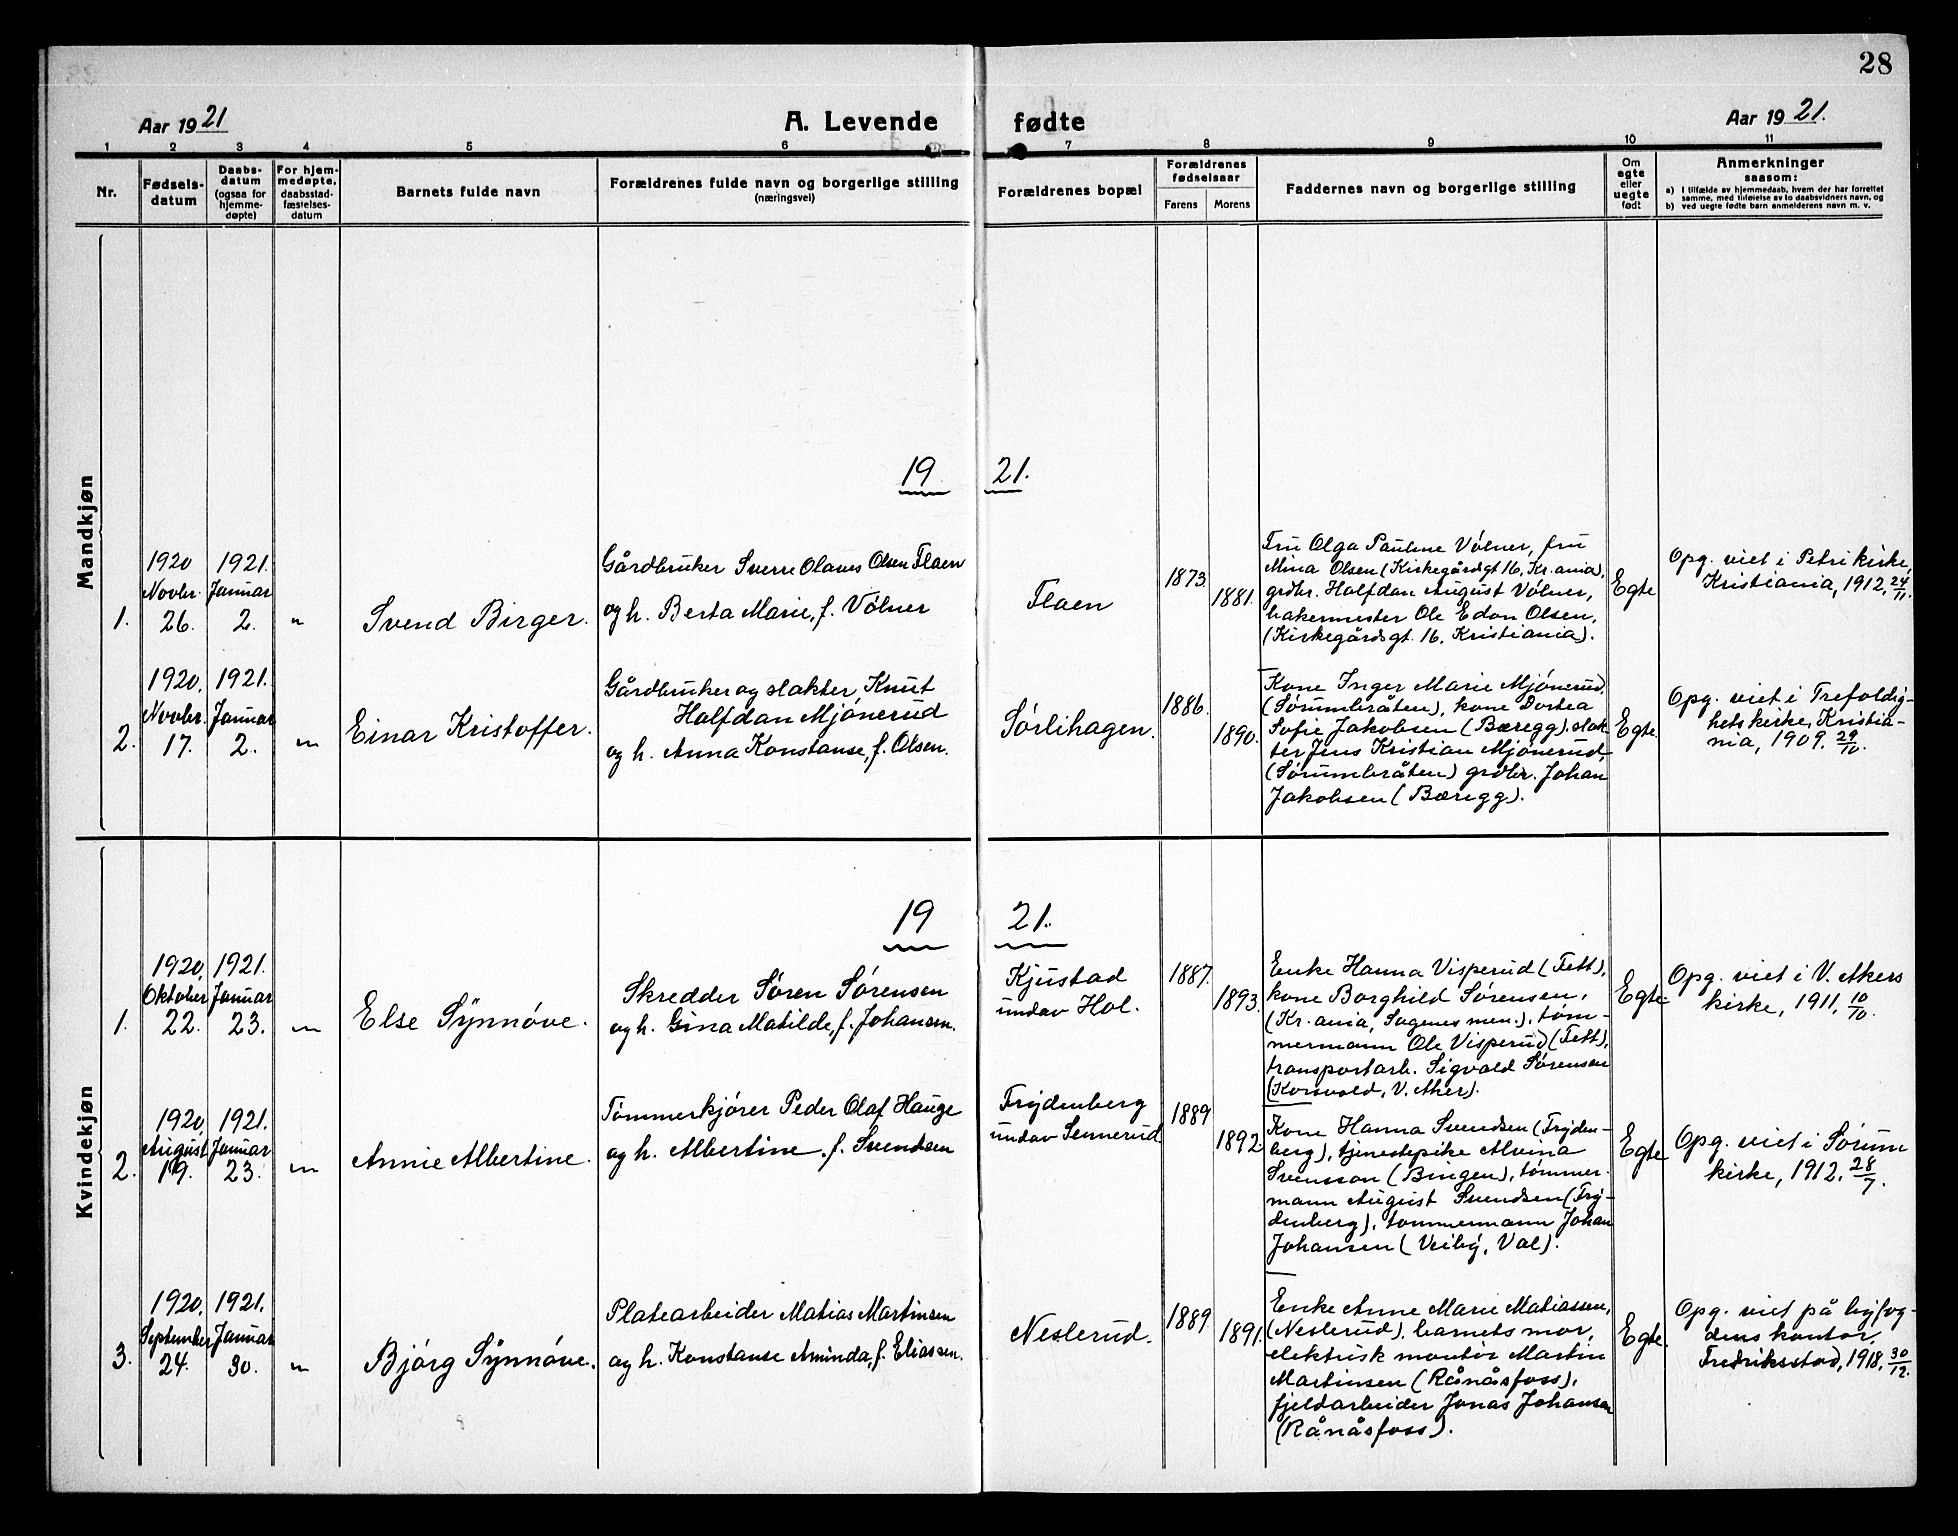 28
Aar 1921
A. Levende fødte
Aar 1921.
1 2 3 4 5 6 7 8 9 10 11
Nr.
Fødsels-
datum
Daabs-
datum
(ogsaa for
hjemme-
døpte)
For hjem-
medøpte,
daabsstad-
fæstelses-
datum
Barnets fulde navn
Forældrenes fulde navn og borgerlige stilling
(næringsvei)
Forældrenes bopæl
Forældrenes
fødselsaar
Farens Morens
Faddernes navn og borgerlige stilling
Om
egte
eller
uegte
født
Anmerkninger
saasom:
a) I tilfælde av hjemmedaab, hvem der har forrettet
samme, med tilføielse av to daabsvidners navn, og
b) ved uegte fødte barn anmelderens navn m. v.
Mandkjøn
19 21.
1.
1920
Novbr.
26.
1921.
Januar
2.
"
Svend Birger.
Gårdbruker Sverre Olaves Olsen Flaen
og h. Berta Marie, f. Vølner
Flaen
1873
1881.
Fru Olga Pauline Vølner, fru
Mina Olsen (Kirkegårdsgt 16, Kr.ania),
grdbr. Halfdan August Vølner,
bakermester Ole Edon Olsen,
(Kirkegårdsgt. 16, Kristiania).
Egte
Opg. viet i Petri kirke,
Kristiania, 1912, 24/11.
2.
1920.
Novbr.
17.
1921.
Januar
2.
"
Einar Kristoffer.
Gårdbruker og slakter Knut
Halfdan Mjønerud
og h. Anna Konstanse, f. Olsen.
Sørlihagen.
1886.
1890.
Kone Inger Marie Mjønerud
(Sørumbråten), kone Dortea
Sofie Jakobsen (Bæregg), slak-
ter Jens Kristian Mjønerud,
(Sørumbråten) grdbr. Johan
Jakobsen (Bæregg).
Egte.
Opg. viet i Trefoldig-
hetskirke, Kristia-
nia, 1909. 29/10.
Kvindekjøn
19 21.
1.
1920.
Oktober
22.
1921.
Januar
23.
"
Else Synnøve.
Skredder Søren Sørensen
og h. Gina Matilde, f. Johansen.
Kjustad
undav Hol.
1887.
1893.
Enke Hanna Visperud (Fett),
kone Borghild Sørensen,
(Kr.ania, Sagenes men.), tøm-
mermann Ole Visperud (Fett),
transportarb. Sigvald Sørensen
(Korsvold, V. Aker).
Egte
Opg. viet i V. Akers
kirke, 1911, 10/10.
2.
1920.
August
19.
1921.
Januar
23.
"
Annie Albertine.
Tømmerkjører Peder Olaf Hauge
og h. Albertine, f. Svendsen
Frydenberg
undav Sennerud
1889
1892.
Kone Hanna Svendsen (Fryden-
berg), tjenestepike Alvina
Svensson (Bingen), tømmer-
mann August Svendsen (Fry-
denberg), tømmermann Johan
Johansen (Veiby, Val).
Egte
Opg. viet i Sørum
kirke, 1912. 28/7.
3.
1920.
September
24.
1921.
Januar
30.
"
Bjørg Synnøve.
Platearbeider Matias Martinsen
og h. Konstanse Aminda, f. Eliassen.
Neslerud.
1889
1891.
Enke Anne Marie Matiassen,
(Neslerud), barnets mor,
elektrisk montør Martin
Martinsen (Rånåsfoss),
fjeldarbeider Jonas Johansen
(Rånåsfoss).
Egte.
Opg. viet på byfog-
dens kontor,
Fredriksstad, 1918, 30/12.